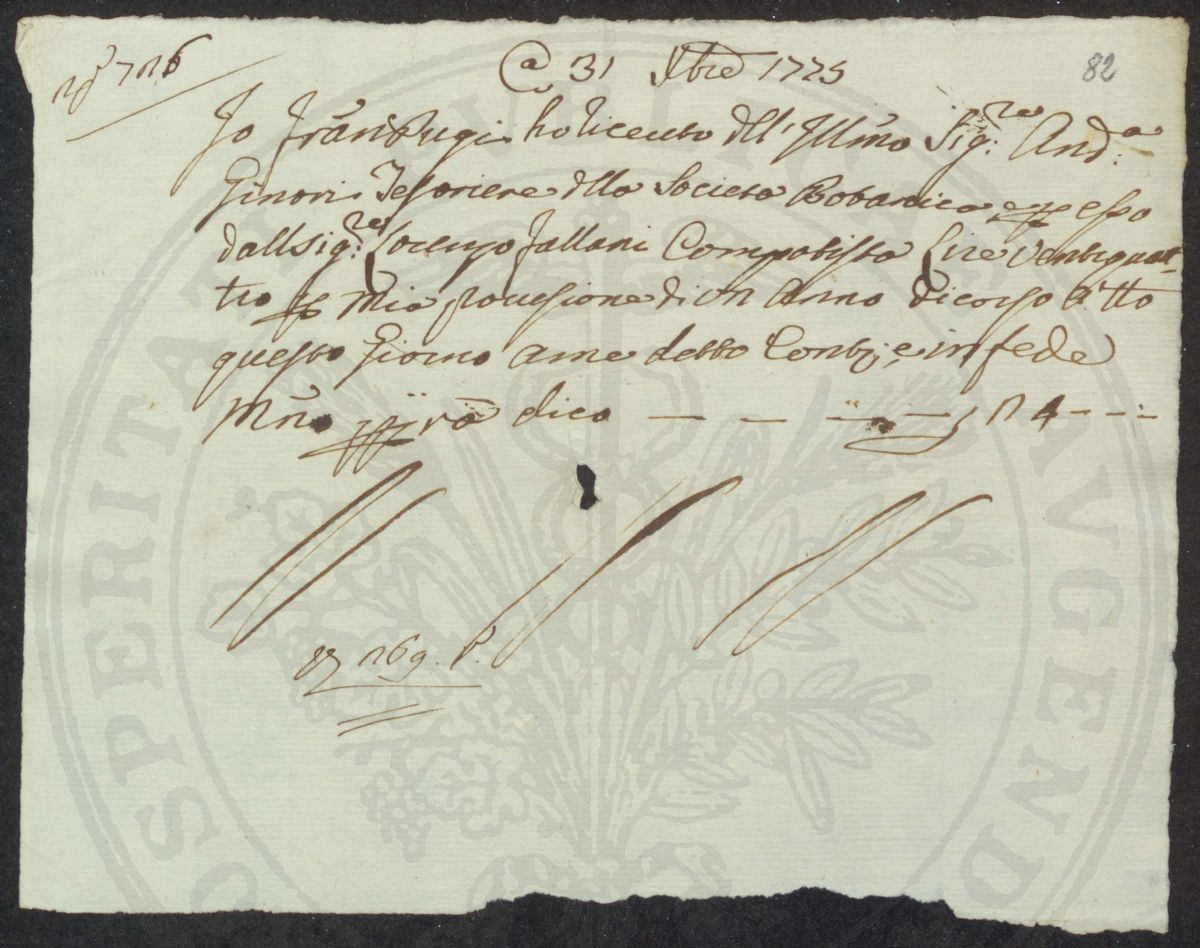 N° 726
82
A 31 Xbre 1775
Io Fran Rugi ho riceuto dll' Illmo Sigre Anda
Ginori Tesoriere dlla Società Botanica e p esso
dall Sigre Lorenzo Fallani Computista Lire Ventiquat-
tro p Mia provisione di un Anno dicorso a tto
questo Giorno ame detto Conti, e in fede
Mno ppria dico — — — — 24 - - -
269
PROSPERITATI PVBLICAE AVGENDAE